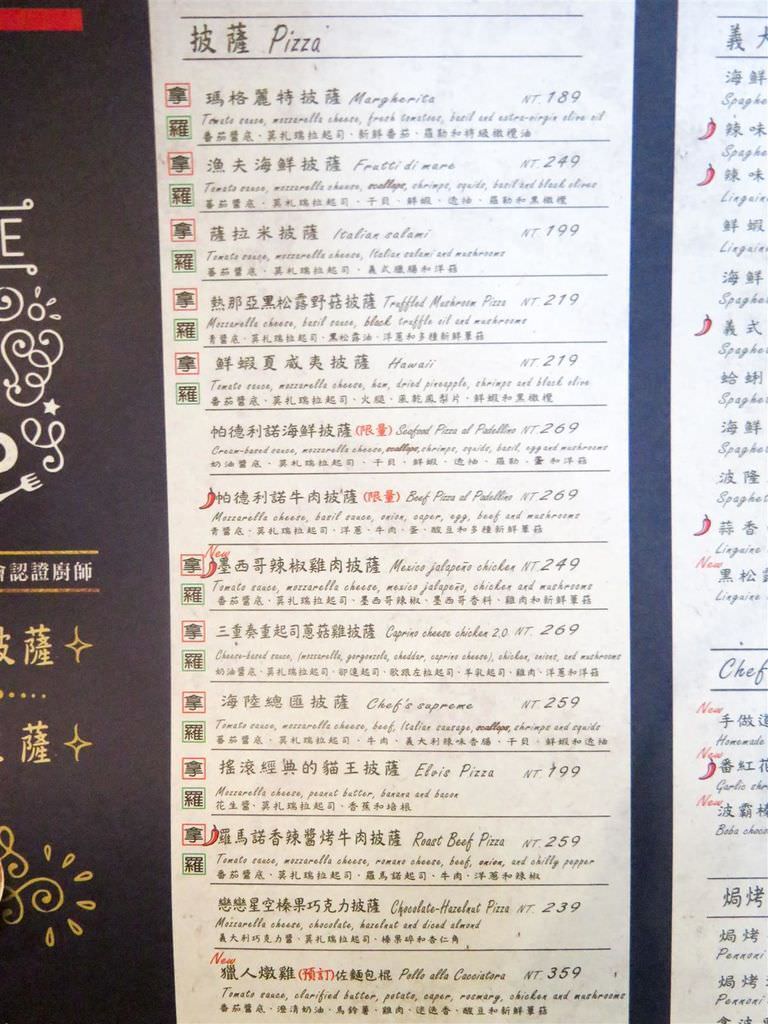 披薩 Pizza
拿 瑪格麗特披薩 Margherita NT. 189
羅 Tomato sauce, mozzarella cheese, fresh tomatoes, basil and extra-virgin olive oil
番茄醬底、莫札瑞拉起司、新鮮番茄、羅勒和特級橄欖油
拿 漁夫海鮮披薩 Frutti di mare NT. 249
羅 Tomato sauce, mozzarella cheese, scallops, shrimps, squids, basil and black olives
番茄醬底、莫札瑞拉起司、干貝、鮮蝦、透抽、羅勒和黑橄欖
拿 薩拉米披薩 Italian salami NT. 199
羅 Tomato sauce, mozzarella cheese, Italian salami and mushrooms
番茄醬底、莫札瑞拉起司、義式臘腸和洋菇
拿 熱那亞黑松露野菇披薩 Truffled Mushroom Pizza NT. 219
羅 Mozzarella cheese, basil sauce, black truffle oil and mushrooms
青醬底、莫札瑞拉起司、黑松露油、洋蔥和多種新鮮蕈菇
拿 鮮蝦夏威夷披薩 Hawaii NT. 219
羅 Tomato sauce, mozzarella cheese, ham, dried pineapple, shrimps and black olive
番茄醬底、莫札瑞拉起司、火腿、風乾鳳梨片、鮮蝦和黑橄欖
帕德利諾海鮮披薩(限量) Seafood Pizza al Padellino NT. 269
Cream-based sauce, mozzarella cheese, scallops, shrimps, squids, basil, egg and mushrooms
奶油醬底、莫札瑞拉起司、干貝、鮮蝦、透抽、羅勒、蛋和洋菇
帕德利諾牛肉披薩(限量) Beef Pizza al Padellino NT. 269
Mozzarella cheese, basil sauce, onion, caper, egg, beef and mushrooms
青醬底、莫札瑞拉起司、洋蔥、牛肉、蛋、酸豆和多種新鮮蕈菇
New
拿 墨西哥辣椒雞肉披薩 Mexico jalapeño chicken NT. 249
羅 Tomato sauce, mozzarella cheese, mexico jalapeño, chicken and mushrooms
番茄醬底、莫札瑞拉起司、墨西哥辣椒、墨西哥香料、雞肉和新鮮蕈菇
拿 三重奏重起司蔥菇雞披薩 Caprino cheese chicken 2.0 NT. 269
羅 Cheese-based sauce, (mozzarella, gorgonzola, cheddar, caprino cheese), chicken, onions, and mushrooms
奶油醬底、莫札瑞拉起司、卻達起司、歌跟左拉起司、羊乳起司、雞肉、洋蔥和洋菇
拿 海陸總匯披薩 Chef's supreme NT. 259
羅 Tomato sauce, mozzarella cheese, beef, Italian sausage, scallops, shrimps and squids
番茄醬底、莫札瑞拉起司、牛肉、義大利辣味香腸、干貝、鮮蝦和透抽
拿 搖滾經典的貓王披薩 Elvis Pizza NT. 199
羅 Mozzarella cheese, peanut butter, banana and bacon
花生醬、莫札瑞拉起司、香蕉和培根
拿 羅馬諾香辣醬烤牛肉披薩 Roast Beef Pizza NT. 259
羅 Tomato sauce, mozzarella cheese, romano cheese, beef, onion, and chilly pepper
番茄醬底、莫札瑞拉起司、羅馬諾起司、牛肉、洋蔥和辣椒
戀戀星空榛果巧克力披薩 Chocolate-Hazelnut Pizza NT. 239
Mozzarella cheese, chocolate, hazelnut and diced almond
義大利巧克力醬、莫札瑞拉起司、榛果碎和杏仁角
New
獵人燉雞(預訂)佐麵包棍 Pollo alla Cacciatora NT. 359
Tomato sauce, clarified butter, potato, caper, rosmary, chicken and mushrooms
番茄醬底、澄清奶油、馬鈴薯、雞肉、迷迭香、酸豆和新鮮蕈菇
E
會認證廚師
披薩
薩
義大
海鮮
Spaghe
辣味
Spaghe
辣味
Linguine
鮮蝦
Linguin
海鮮
Spaghe
義式
Spaghe
蛤蜊
Spaghe
海鮮
Spaghe
波隆
Spaghet
蒜香
Linguine
New
黑松露
Linguine
Chef
New
手做道
Homemade
New
番紅花
Garlic shr
New
波霸榛
Boba choco
焗烤
焗烤
Pennoni
焗烤
Pennoni